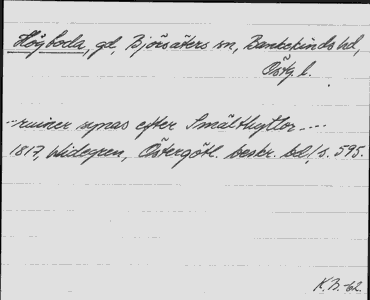 Högboda, gd, Björsäters sn, Bankekinds hd,
Östg. l.
--- ruiner synas efter Smälthyttor ---
1817, Widegren, Östergötl. beskr. bd 1, s. 595.
K.B. bl.